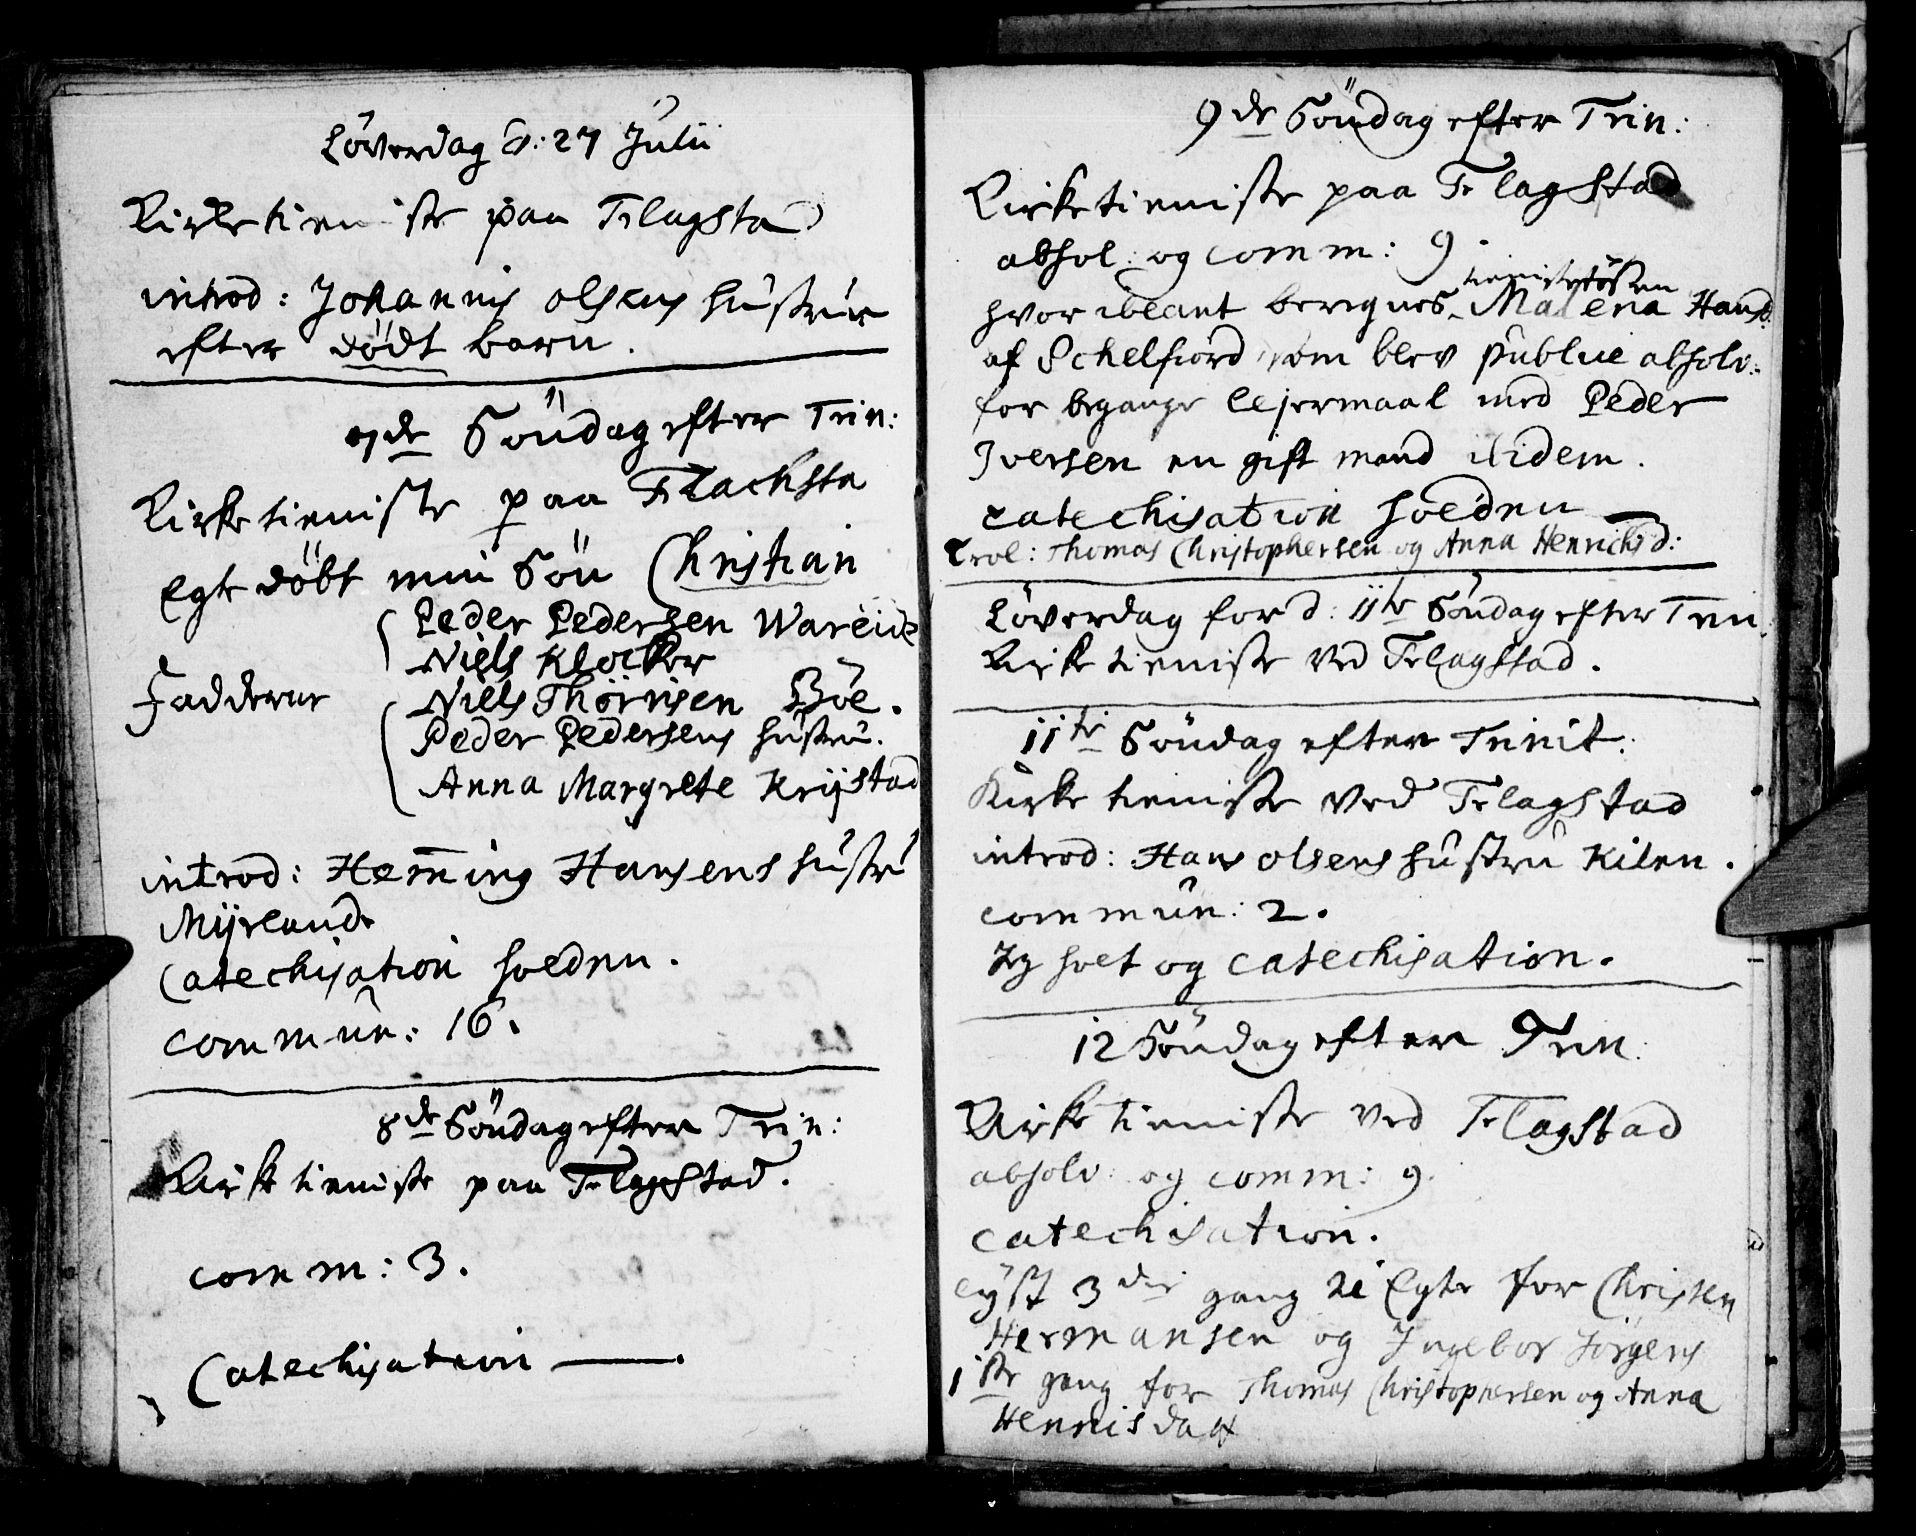 Löverdag d: 27 Julii
Kirketieniste paa Flagsta
introd: Johannis olsens hustrue
efter dödt barn.
7de Söndag efter Trin:
Kirketieniste paa Flachsta
Egte döbt min Sön Christian
Peder Pedersen Wareide
Niels Klocker
Fadderne Niels Thönisen Böe.
Peder Pedersens hustru.
Anna Margrete Krijstad
introd: Hem̄ing Hansens hustru
Mÿrland
Catechisation holden.
commun: 16.
8de Söndag efter Trin:
Kirketieniste paa Flagstad.
comm: 3.
Catechisation
9de Söndag efter Trin:
Kirketieniste paa Flagstad
absol: og comm: 9.
tienistetösen
hvor iblant beregnes Malena Hansd:
af Schelfiord som blev publice absolv:
for begange lejermaal med Peder
Iversen en gift mand ibidem.
catechisation holden
Trol: Thomas Christophersen og Anna Henrichsd:
Löverdag for d: 11te Söndag efter Trin.
Kirketieniste ved Flagstad.
11te Söndag efter Trinit:
Kirketieniste ved Flagstad
introd: Hans olsens hustru Kilen.
commun: 2.
og catechisation.
12 Söndag efter Trin:
Kirketieniste ved Flagstad
absolv: og comm: 9.
catechisation.
lÿst 3die gang til Egte for Christen
Hermansen og Ingebor Jörgens
1ste gang for Thomas Christophersen og Anna
Hennisdatt